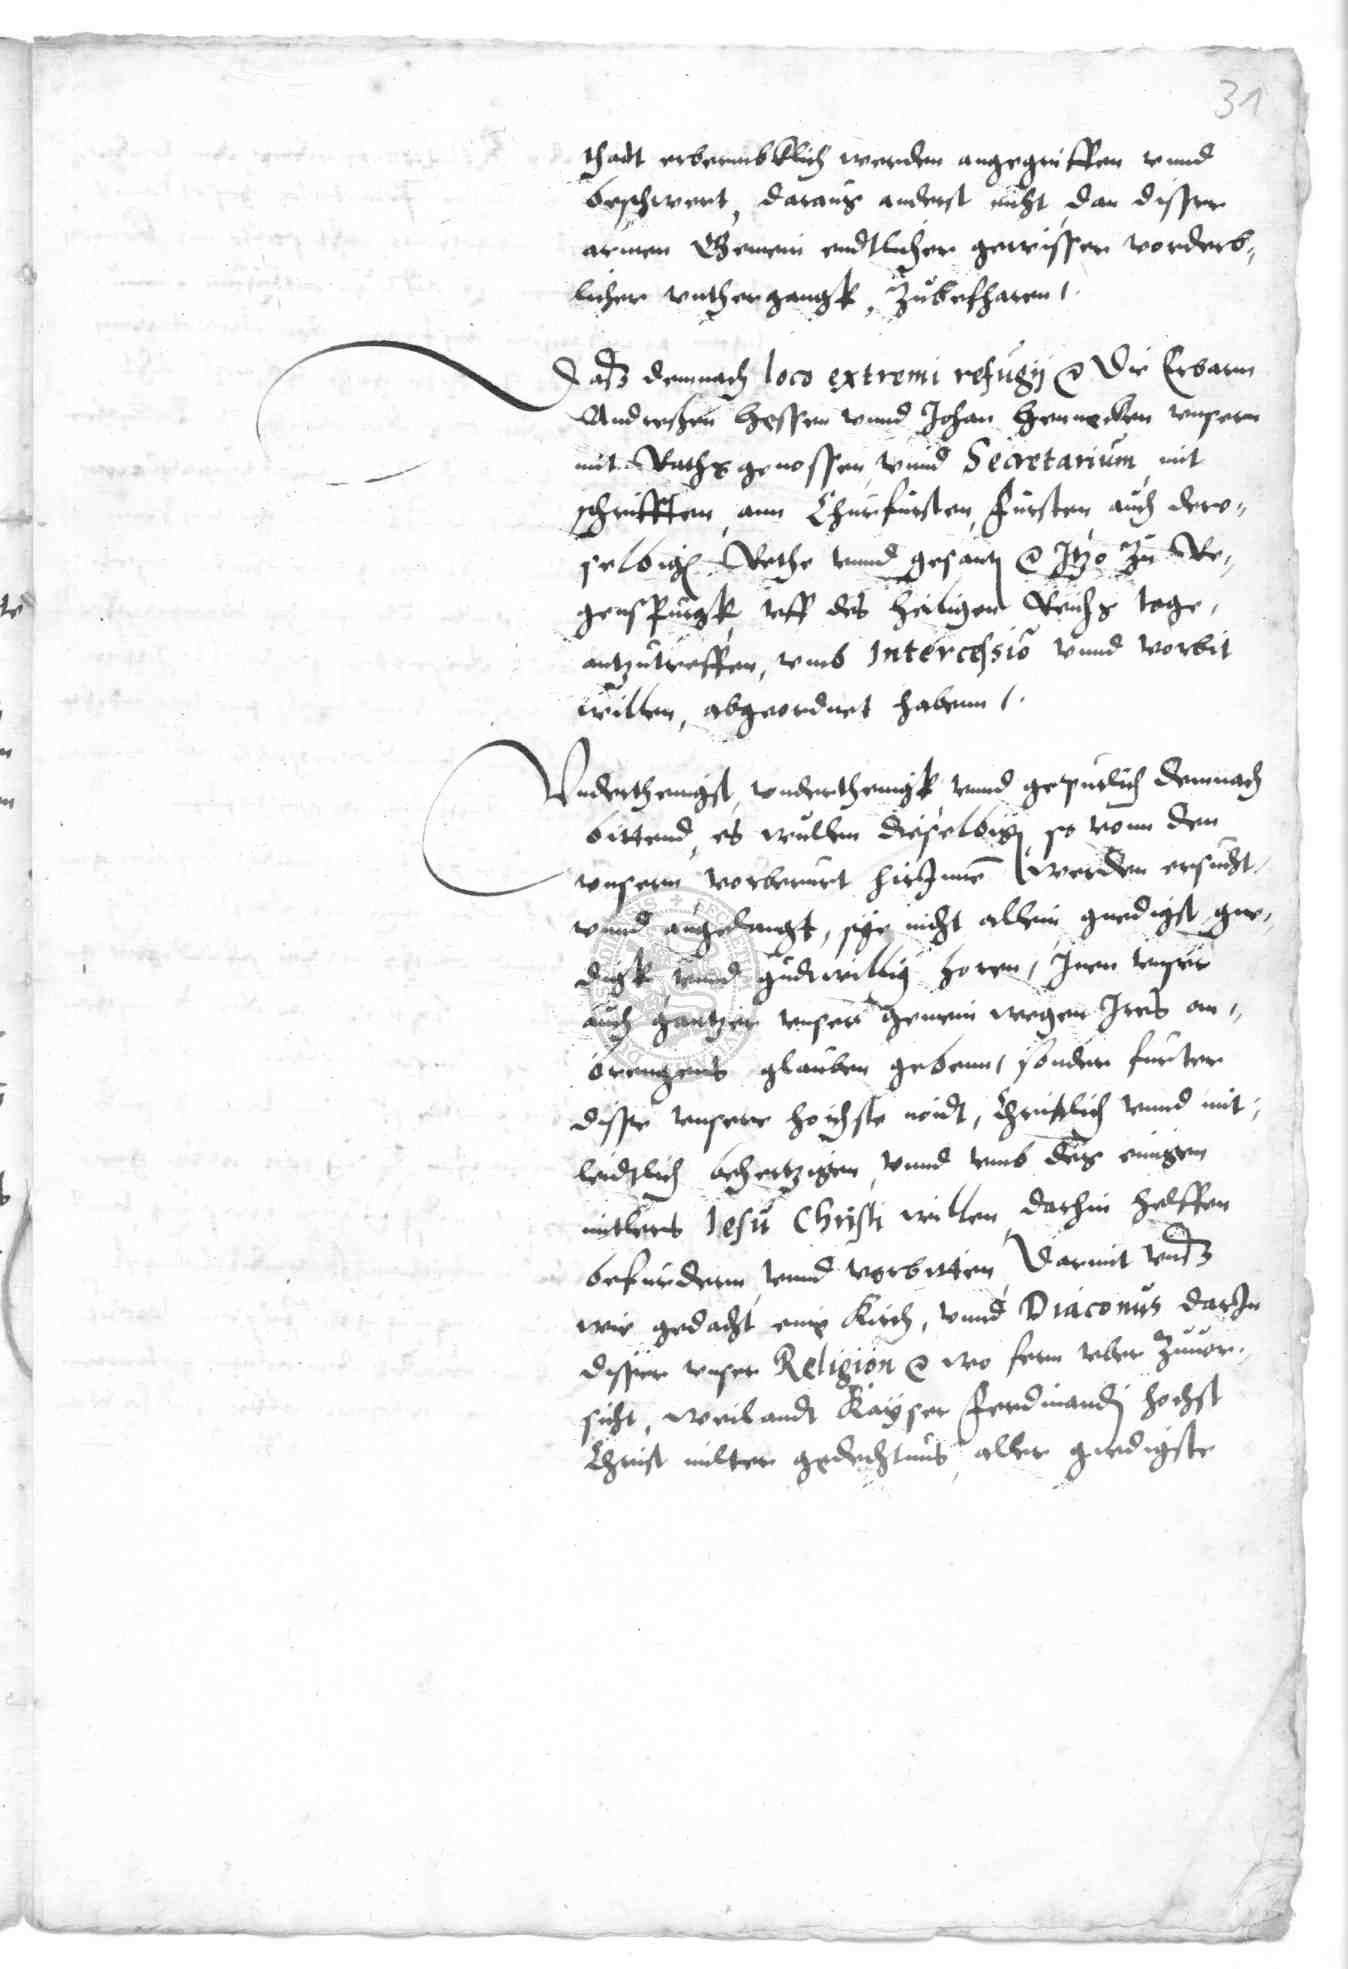 31
thadt erbermbklich werden angegriffen vnnd
beschwert, daraus anderst nicht dan disser
armen Gemein endtlicher gewisser vorderb-
licher vnthergangk, Zubefharen /.
Dasz demnach loco extremi refugij Die Erbarn
Andreßen Hessen vnnd Johan vnsern
mit Rathsgenossen vnnd Secretarium mit
schrifften, ann Churfursten, Fursten, auch dero-
selbig Rethe vnnd gesant Itzo Zu Re-
genspurgk, vff des Heiligen Reichs tage,
antzutreffen, vmb Intercessio vnnd vorbit
willen, abgeordnet habenn /.
Vnderthenigst, vnderthenigk, vnnd gepurlich demnach
bittend, es wullen dieselbig, so vonn den
vnsern vorberurt hirJnne werden ersucht
vnnd angelangt, sye nicht allein gnedigst, gne-
digk vnnd gudtwillig horen, Jnen vnser
auch gantzer vnser gemein wegen Jres an-
brengens glauben gebenn, sonder furter
disse vnsere hochste nodt, Christlich vnnd mit-
leidtlich behertzigen, vnnd vmb des einigen
mitlers Iesu Christi willen, dachin helffen
befurdern, vnnd vorbitten, Darmit vnsz
wie gedacht eine Kirch, vnnd Diaconus darJn
disser vnser Religion wo fern vber Zuuor-
sicht, weilandt Kayser Ferdinandj hochst
Christ milter gedechtnus, aller gnedigste